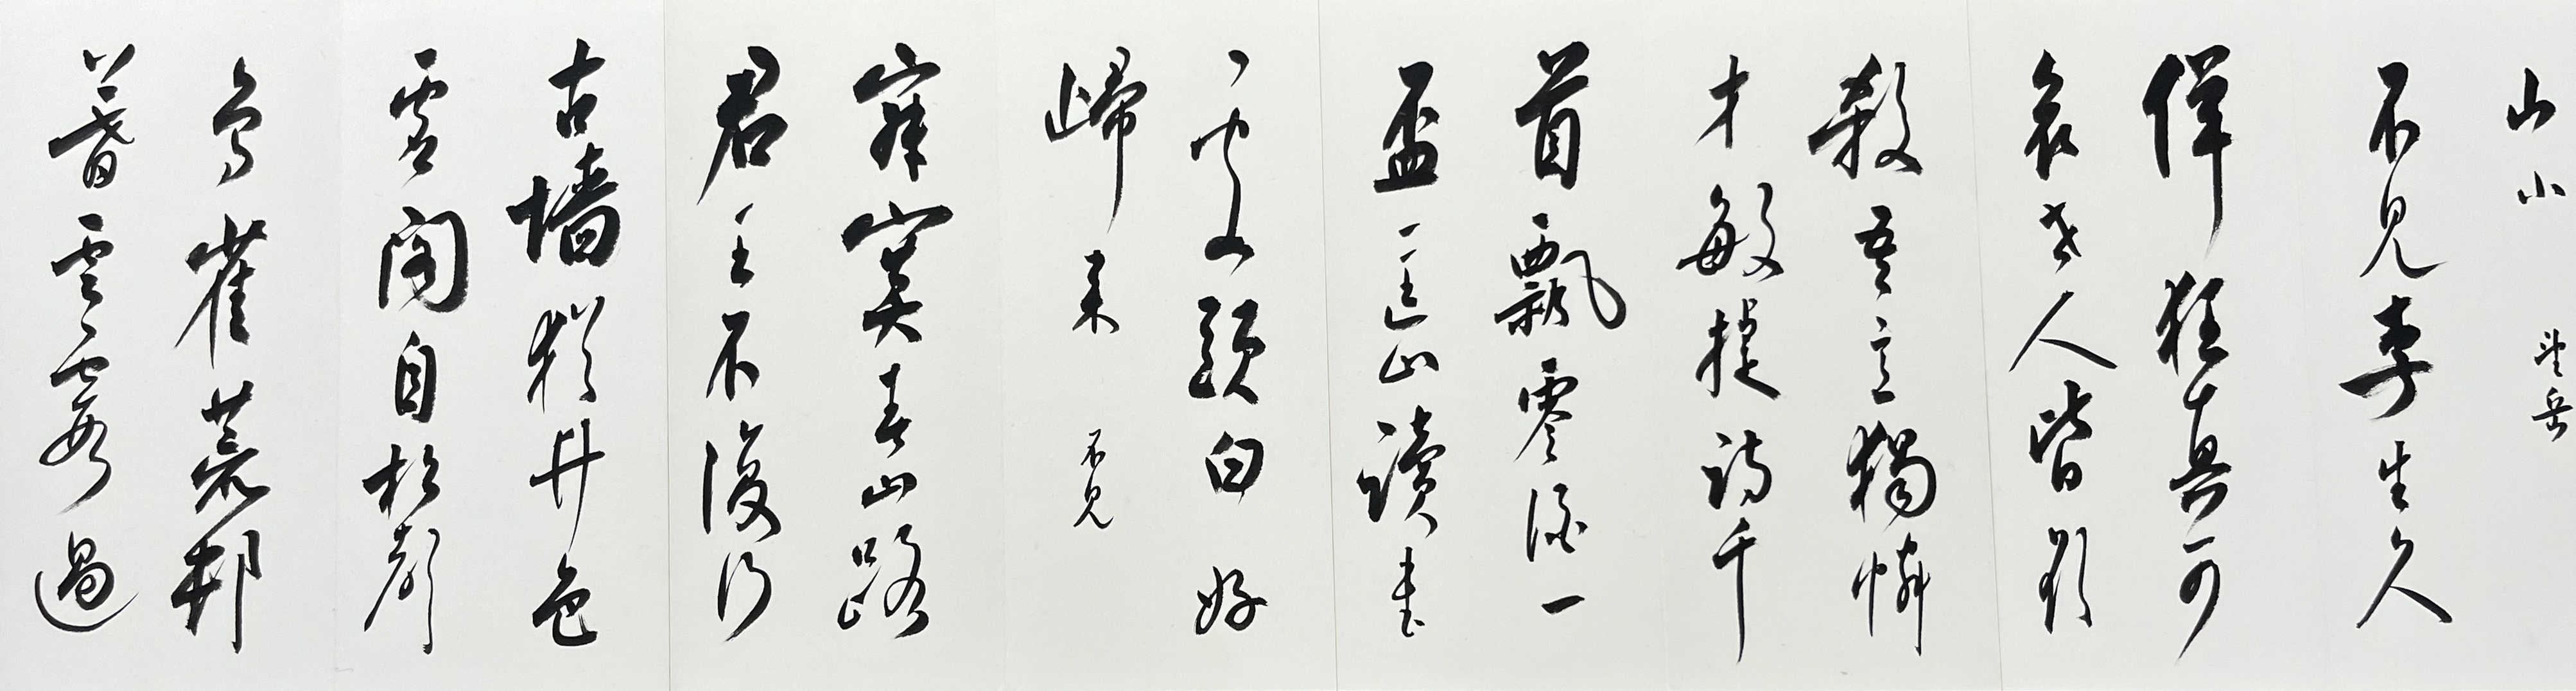 山小 望岳
不見李生久
佯狂真可
哀世人皆欲
殺吾意獨憐
才敏捷詩千
首飄零酒一
盃匡山讀書
處頭白好
歸來 不見
寂寞春山路
君王不復行
古墙猶竹色
虛閣自松聲
鳥雀荒村
暮雲霞過